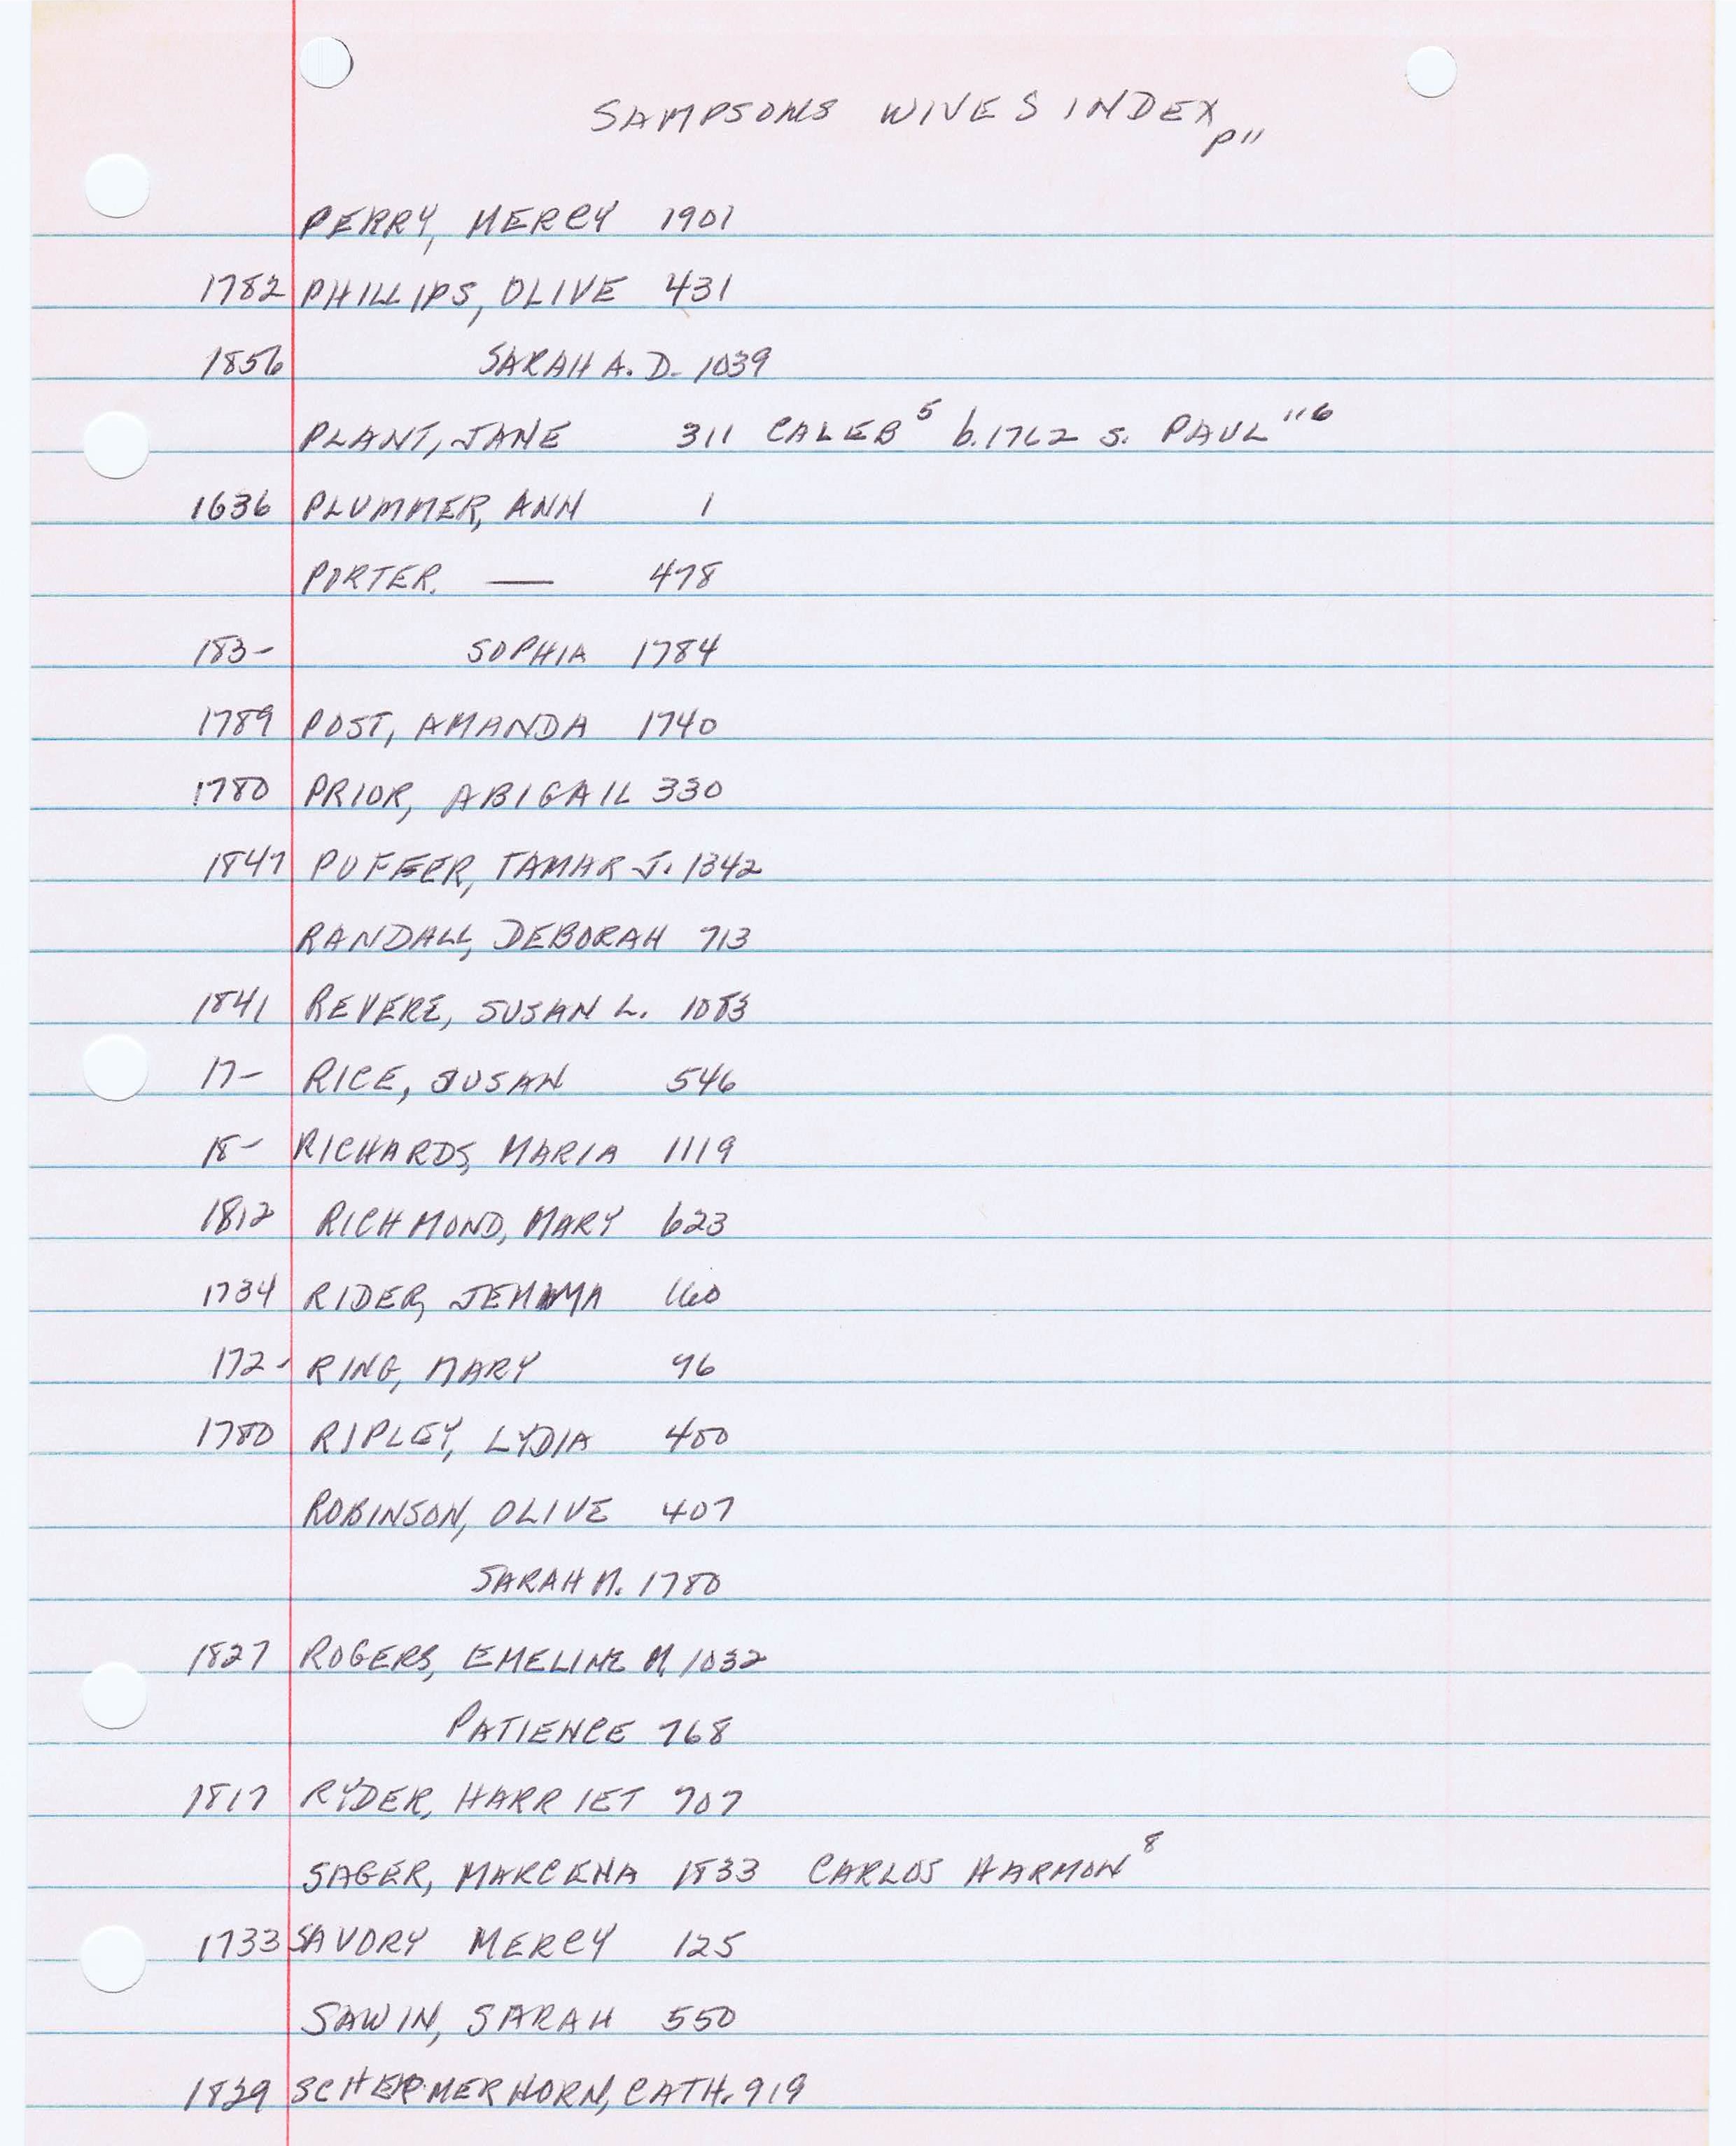 SAMPSONS WIVES INDEX
P11
PERRY, MERCY 1901
1782 PHILLIPS, OLIVE 431
1856 SARAH A. D. 1039
PLANT, JANE 311 CALEB⁵ b.1762 s. PAUL "⁶
1636 PLUMMER, ANN 1
PORTER, — 478
183- SOPHIA 1784
1789 POST, AMANDA 1740
1780 PRIOR, ABIGAIL 330
1847 PUFFER, TAMAR J. 1342
RANDALL, DEBORAH 713
1841 REVERE, SUSAN L. 1083
17- RICE, SUSAN 546
18- RICHARDS, MARIA 1119
1812 RICHMOND, MARY 623
1734 RIDER, JEMIMA 160
172- RING, MARY 96
1780 RIPLEY, LYDIA 400
ROBINSON, OLIVE 407
SARAH M. 1780
1827 ROGERS, EMELINE M. 1032
PATIENCE 768
1817 RYDER, HARRIET 707
SAGER, MARCENA 1833 CARLOS HARMON⁸
1733 SAVORY MERCY 125
SAWIN, SARAH 550
1829 SCHERMERHORN, CATH. 919